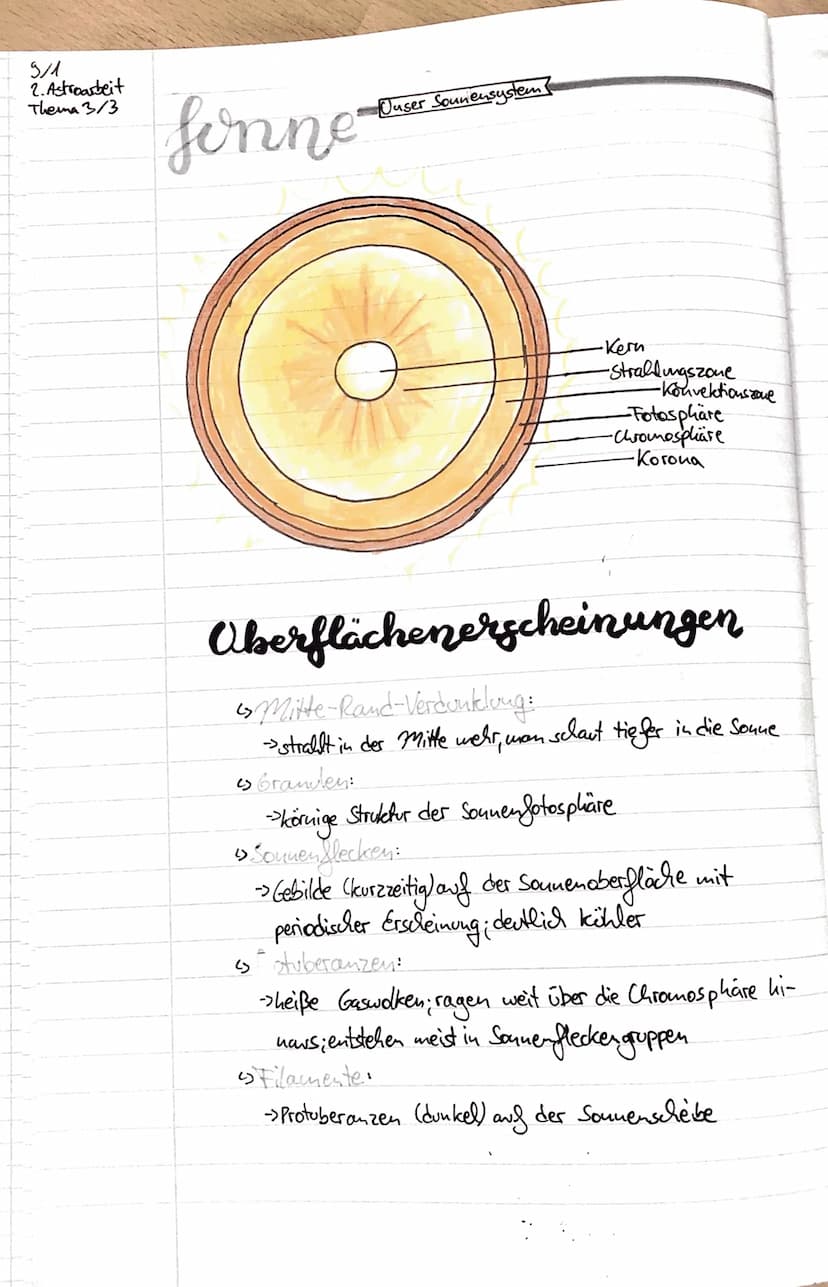 9/1
2. Astroarbeit
Thema 3/3
Sonne
Unser Sonnensystem
Kern
Strahlungszone
Konvektionszone
Fotosphäre
Chromosphäre
Korona
Oberflächenerscheinungen
↳ Mitte-Rand-Verdunklung:
→ strahlt in der Mitte mehr, man schaut tiefer in die Sonne
↳ Granulen:
→ körnige Struktur der Sonnenfotosphäre
↳ Sonnenflecken:
→ Gebilde (kurzzeitig) auf der Sonnenoberfläche mit
periodischer Erscheinung; deutlich kühler
↳ otuberanzen:
→ heiße Gaswolken; ragen weit über die Chromosphäre hi-
naus; entstehen meist in Sonnenfleckengruppen
↳ Filamente:
→ Protuberanzen (dunkel) auf der Sonnenscheibe